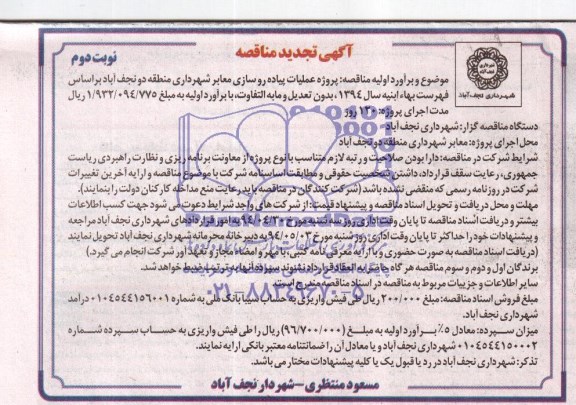 آگهی تجدید مناقصه
نوبت دوم
شهرداری نجف آباد
موضوع و برآورد اولیه مناقصه: پروژه عملیات پیاده رو سازی معابر شهرداری منطقه دو نجف آباد براساس
فهرست بهاء ابنیه سال ۱۳۹۴، بدون تعدیل و مابه التفاوت، با برآورد اولیه به مبلغ ۱/۹۳۲/۰۹۴/۷۷۵ ریال
مدت اجرای پروژه: ۱۲۰ روز
دستگاه مناقصه گزار: شهرداری نجف آباد
محل اجرای پروژه: معابر شهرداری منطقه دو نجف آباد
شرایط شرکت در مناقصه: دارا بودن صلاحیت و رتبه لازم متناسب با نوع پروژه از معاونت برنامه ریزی و نظارت راهبردی ریاست
جمهوری، رعایت سقف قرارداد، داشتن شخصیت حقوقی و مطابقت اساسنامه شرکت با موضوع مناقصه و ارایه آخرین تغییرات
شرکت در روزنامه رسمی که منقضی نشده باشد (شرکت کنندگان در مناقصه باید رعایت منع مداخله کارکنان دولت را بنمایند).
مهلت و محل دریافت و تحویل اسناد مناقصه و پیشنهاد قیمت: از شرکت های واجد شرایط دعوت می شود جهت کسب اطلاعات
بیشتر و دریافت اسناد مناقصه تا پایان وقت اداری روز سه شنبه مورخ ۹۴/۰۴/۳۰ به امور قراردادهای شهرداری نجف آباد مراجعه
و پیشنهادات خود را حداکثر تا پایان وقت اداری روز شنبه مورخ ۹۴/۰۵/۰۳ به دبیرخانه محرمانه شهرداری نجف آباد تحویل نمایند
(دریافت اسناد مناقصه به صورت حضوری و با ارایه معرفی نامه کتبی، با مهر و امضاء مجاز و تعهدآور شرکت انجام می گیرد).
برندگان اول و دوم و سوم مناقصه هر گاه حاضر به انعقاد قرارداد نشوند سپرده آنها به ترتیب ضبط خواهد شد.
سایر اطلاعات و جزییات مربوط به مناقصه در اسناد مناقصه مندرج است.
مبلغ فروش اسناد مناقصه: مبلغ ۲۰۰/۰۰۰ ریال طی فیش واریزی به حساب سیبا بانک ملی به شماره ۰۱۰۴۵۴۴۱۵۶۰۰۱ درآمد
شهرداری نجف آباد.
میزان سپرده: معادل ۵٪ برآورد اولیه به مبلغ (۹۶/۷۰۰/۰۰۰) ریال را طی فیش واریزی به حساب سپرده شماره
۰۱۰۴۵۴۴۱۵۰۰۰۲ شهرداری نجف آباد و یا معادل آن را ضمانتنامه معتبر بانکی ارایه نمایند.
تذکر: شهرداری نجف آباد در رد یا قبول یک یا کلیه پیشنهادات مختار می باشد.
مسعود منتظری - شهردار نجف آباد
۰۲۱-۸۸۳۴۹۶۷۰-۵